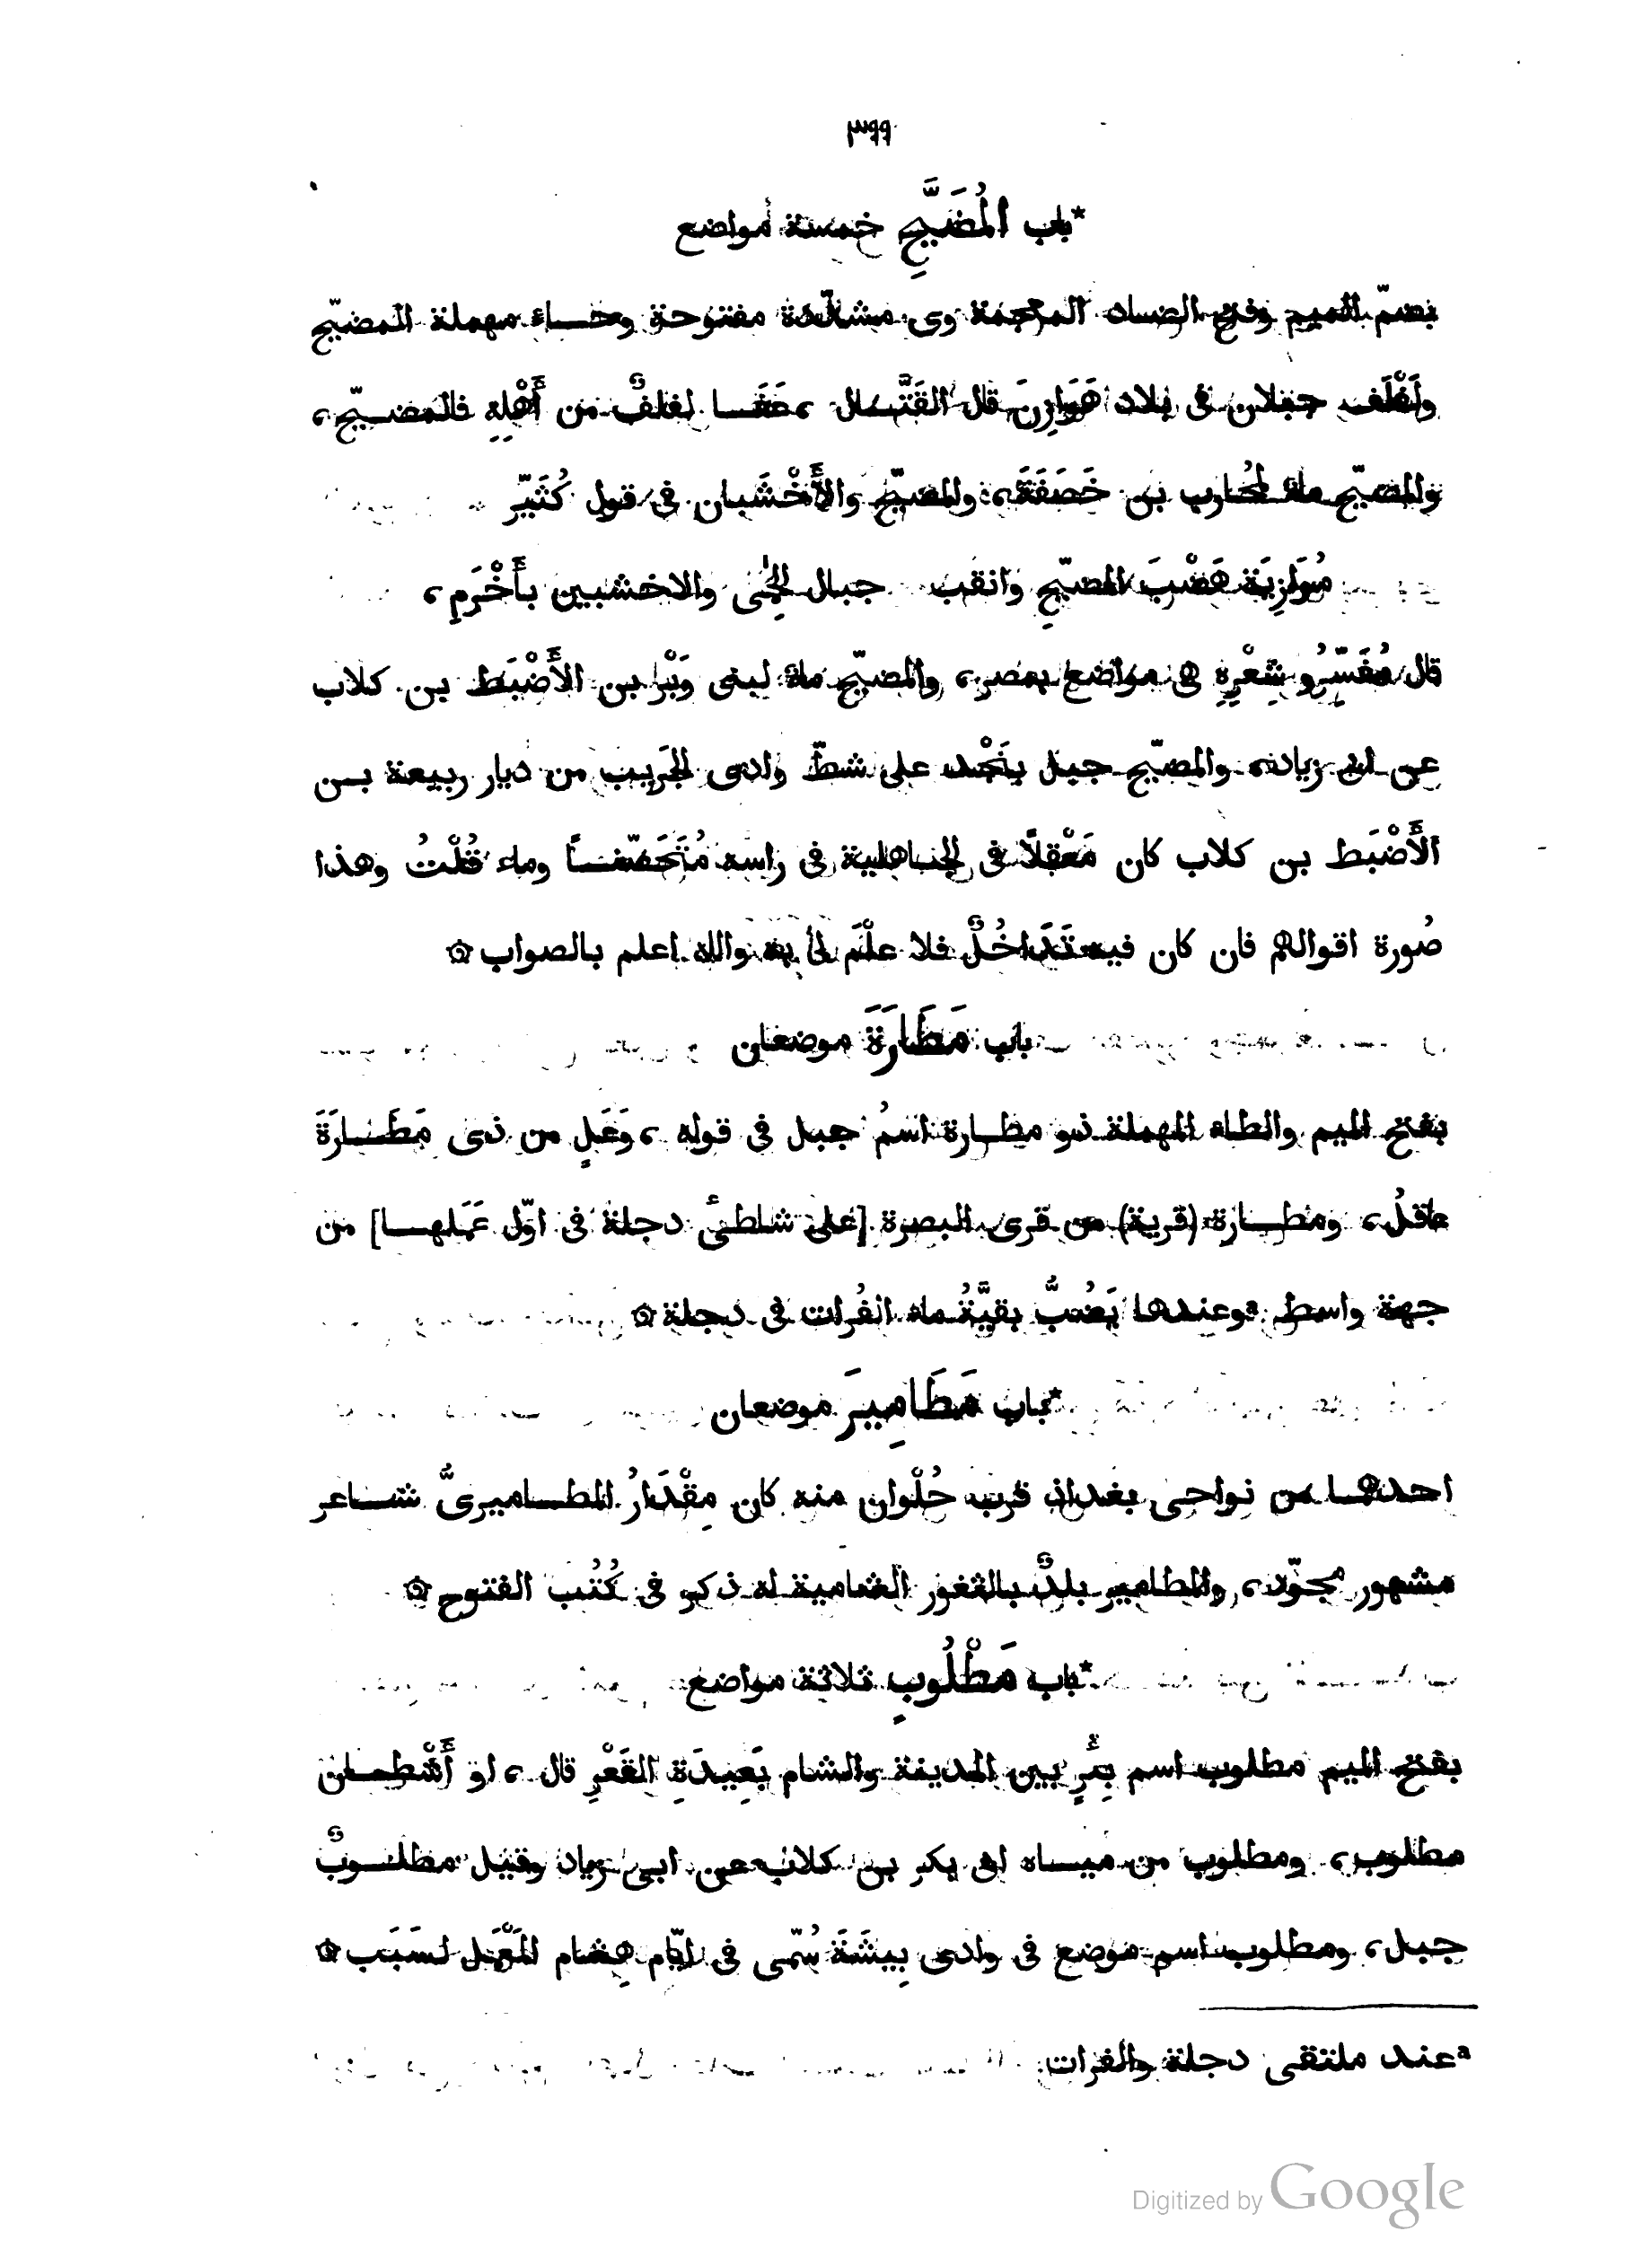 ٣٩٩
*باب المُضَيَّحِ خمسة أمواضع
بضمّ الميم وفتح الضاد المعجمة وى مشدّدة مفتوحة وحاء مهملة المضيّح
ولَفْلَف جبلان فى بلاد هَوَازِنَ قال القَتَّال ، عَفَا لفلفٌ من أَهْلِهِ فالمضيّح ،
والمضيّح ماء لمُحارب بن خَصَفَةَ ، والمضيّح والأَخْشَبان فى قول كُثَيّر
مُوَازِيَة هَضْبَ المضيّحِ واتقت جبال الحِمَى والاخشبين بأَخْرَمِ ،
قال مُفَسِّرُو شِعْرِهِ هى مواضع بمصر ، والمضيّح ماء لبنى وَبْر بن الأَضْبَط بن كلاب
عن ابى زياد ، والمضيّح جبل بنَجْد على شطّ وادى الجَرِيب من ديار ربيعة بن
الأَضْبَط بن كلاب كان مَعْقِلًا فى الجاهلية فى راسه مُتَحَصَّنًا وماء قُلْتُ وهذا
صُورة اقوالهم فان كان فيه تَدَاخُلٌ فلا علْمَ لى به والله اعلم بالصواب ۞
باب مَطَارَةَ موضعان
بفتح الميم والطاء المهملة ذو مطارة اسمُ جبل فى قوله ، وَعَلٍ من ذى مَطَارَةَ
عاقلُ ، ومطارة (قرية) من قرى البصرة [على شاطئ دجلة فى اوّل عَمَلها] من
جهة واسط aوعندها يَصُبُّ بقيَّةُ ماء الفُرات فى دجلة ۞
*باب مَطَامِيرَ موضعان
احدهما من نواحى بغداذ قرب حُلْوان منه كان مِقْدَارُ المطاميرىُّ شاعر
مشهور مجوّد ، والمطامير بلدٌ بالثغور الشامية له ذكر فى كُتُب الفتوح ۞
*باب مَطْلُوبٍ ثلاثة مواضع
بفتح الميم مطلوب اسم بِئْرٍ بين المدينة والشام بَعِيدَةِ القَعْرِ قال ، او أَشْطان
مطلوب ، ومطلوب من مياه ابى بكر بن كلاب عن ابى زياد وقيل مطلوبٌ
جبل ، ومطلوب اسم موضع فى وادى بِيشَةَ سُمّى فى ايّام هِشام المَعْمَل لسَبَب ۞
aعند ملتقى دجلة والفرات
Digitized by Google